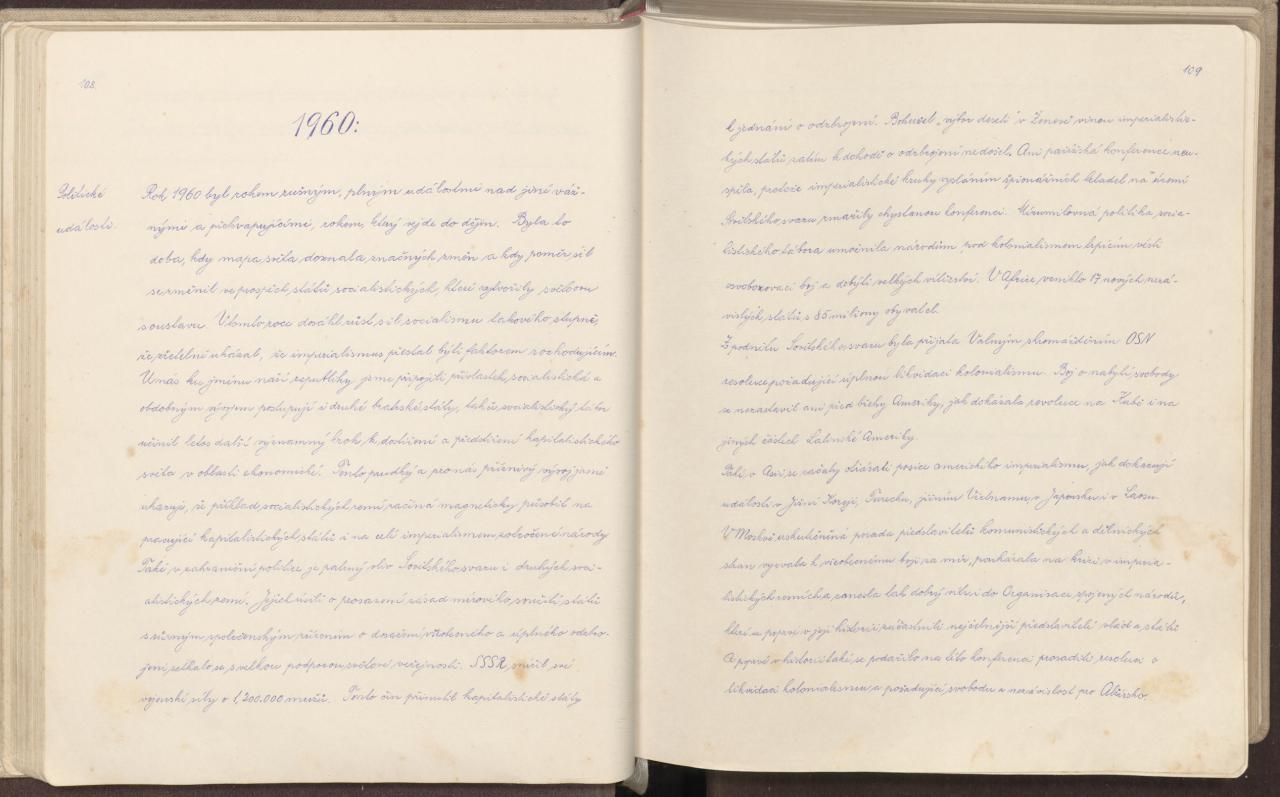 108
1960:
Politické
události.
Rok 1960 byl rokem rušným, plným událostmi nad jiné váž-
nými a překvapujícími, rokem, který vejde do dějin. Byla to
doba, kdy mapa světa doznala značných změn a kdy poměr sil
se změnil ve prospěch států socialistických, které vytvořily světovou
soustavu. V tomto roce dosáhl růst sil socialismu takového stupně,
že zřetelně ukázal, že imperialismus přestal býti faktorem rozhodujícím.
U nás ku jménu naší republiky jsme připojili přívlastek socialistická a
obdobným vývojem postupují i druhé bratrské státy, takže socialistický tábor
učinil letos další významný krok k dostižení a předstižení kapitalistického
světa v oblasti ekonomické. Tento prudký a pro nás příznivý vývoj jasně
ukazuje, že příklad socialistických zemí začíná magneticky působit na
pracující kapitalistických států i na celé imperialismem zotročené národy
Také v zahraniční politice je patrný vliv Sovětského svazu i druhých soci-
alistických zemí. Jejich úsilí o prosazení zásad mírového soužití států
s různým společenským zřízením o dosažení všeobecného a úplného odzbro-
jení, setkalo se s velkou podporou světové veřejnosti. SSSR snížil své
vojenské síly o 1,200.000 mužů. Tento čin přinutil kapitalistické státy
109
k jednání o odzbrojení. Bohužel „výbor deseti" v Ženevě vinou imperialistic-
kých států zatím k dohodě o odzbrojení nedošel. Ani pařížská konference neu-
spěla, protože imperialistické kruhy vysláním špionážních letadel na území
Sovětského svazu zmařily chystanou konferenci. Mírumilovná politika socia-
listického tábora umožnila národům pod kolonialismem trpícím vésti
osvobozovací boj a dobýti velkých vítězství. V Africe vzniklo 17 nových nezá-
vislých států s 85 miliony obyvatel.
Z podnětu Sovětského svazu byla přijata Valným shromážděním OSN
resoluce požadující úplnou likvidaci kolonialismu. Boj o nabytí svobody
se nezastavil ani před břehy Ameriky, jak dokázala revoluce na Kubě i na
jiných částech Latinské Ameriky.
Také v Asii se začaly otřásati posice amerického imperialismu, jak dokazují
události v Jižní Koreji, Turecku, jižním Vietnamu, v Japonsku i v Laosu.
V Moskvě uskutečněná porada představitelů komunistických a dělnických
stran vyzvala k všeobecnému boji za mír, poukázala na krizi v imperia-
listických zemích a zanesla tak dobrý vítr i do Organisace spojených národů,
které se poprvé v její historii zúčastnili nejčelnější představitelé vlád a států
A poprvé v historii také se podařilo na této konferenci prosaditi resoluci o
likvidaci kolonialismu a požadující svobodu a nezávislost pro Alžírsko.